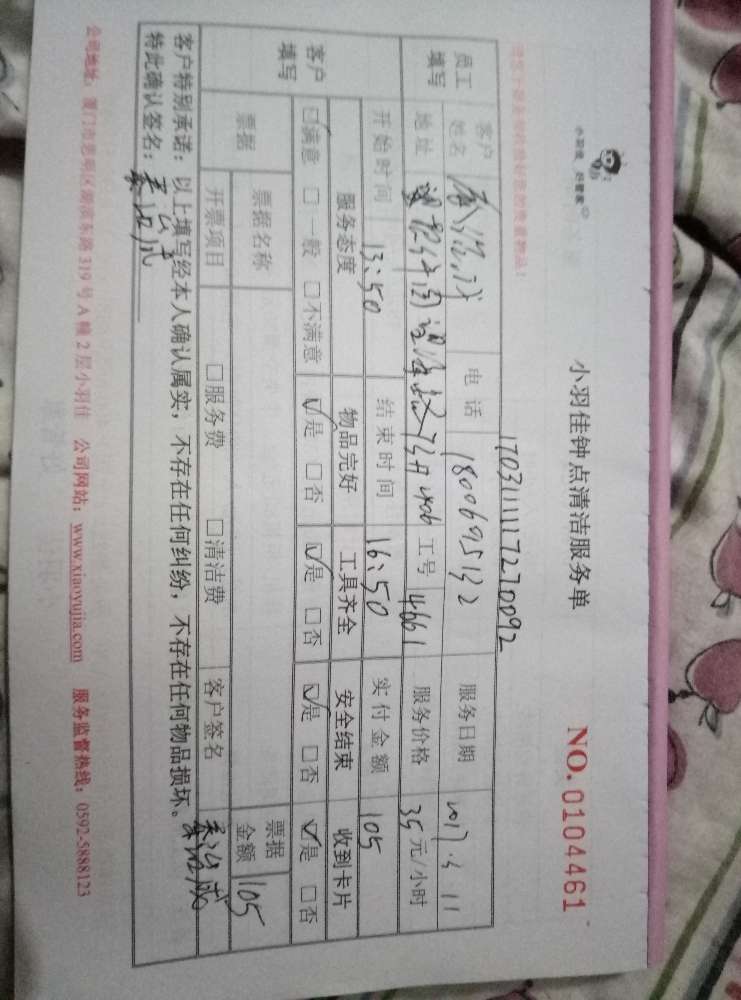 小羽佳 好管家
小羽佳钟点清洁服务单
NO.0104461
170311117270092
员工填写
客户姓名
电话 18006095132
服务日期 2017.3.11
地址
406
工号 4661
服务价格 35元/小时
客户填写
开始时间 13:50
结束时间 16:50
实付金额 105
服务态度 物品完好 工具齐全 安全结束 收到卡片
☑满意 □一般 □不满意 ☑是 □否 ☑是 □否 ☑是 □否 ☑是 □否
票据
票据名称
票据金额 105
开票项目 □服务费 □清洁费 客户签名
客户特别承诺：以上填写经本人确认属实，不存在任何纠纷，不存在任何物品损坏。
特此确认签名：
公司地址：厦门市思明区湖滨东路319号A幢2层小羽佳 公司网站：www.xiaoyujia.com 服务监督热线：0592-5888123